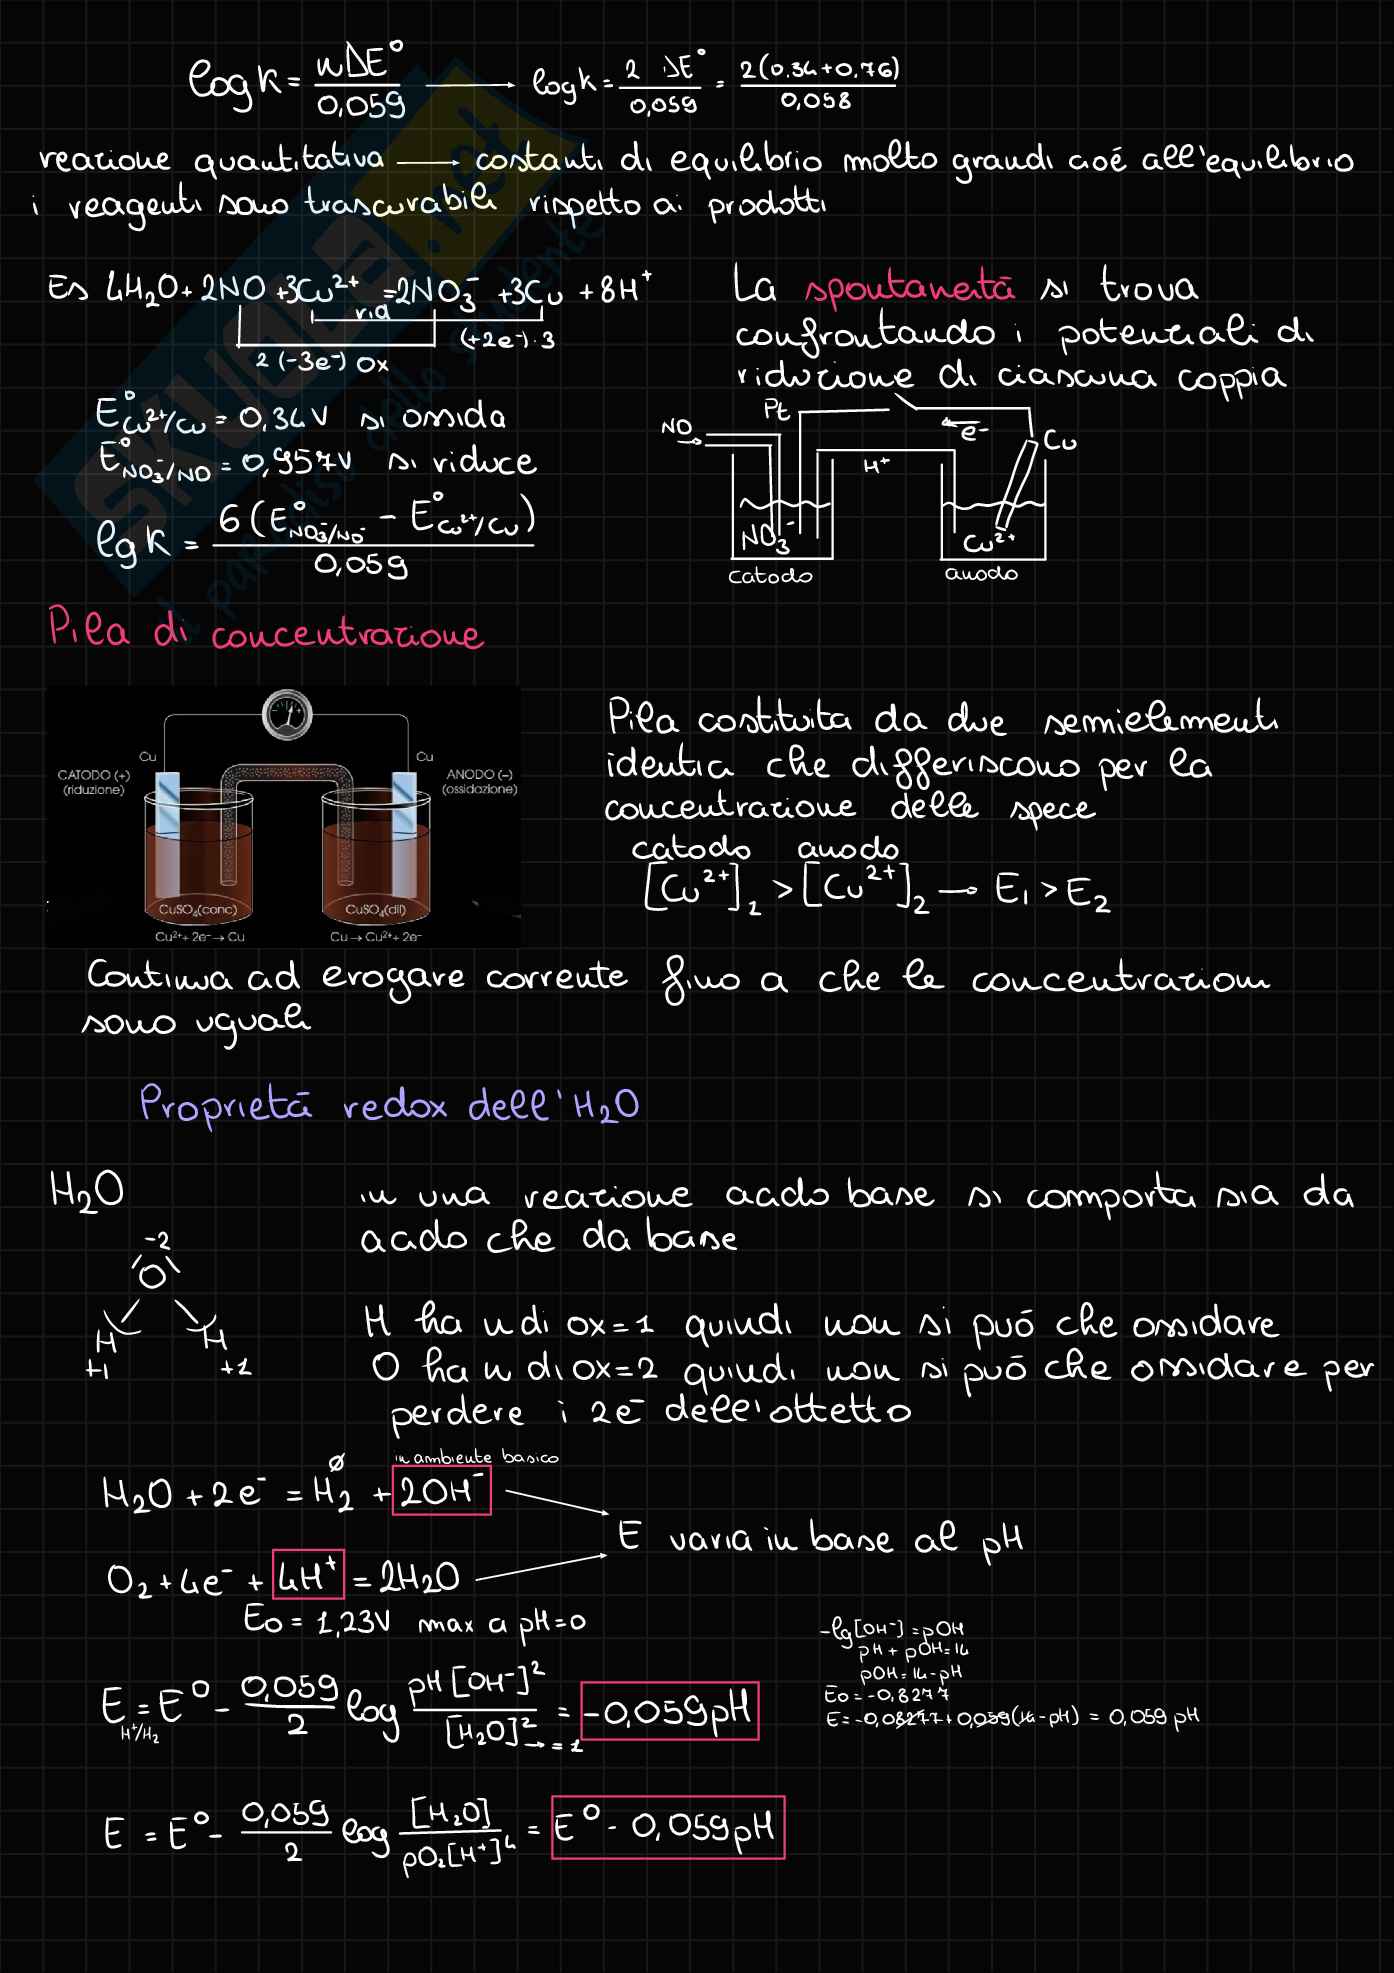 log K = nΔE° / 0,059 → log K = 2 ΔE° / 0,059 = 2(0.34+0.76) / 0,058
reazione quantitativa → costanti di equilibrio molto grandi cioé all'equilibrio
i reagenti sono trascurabili rispetto ai prodotti
Es 4H₂O + 2NO + 3Cu²⁺ = 2NO₃⁻ + 3Cu + 8H⁺
rid
(+2e⁻)·3
2 (-3e⁻) ox
La spontaneità si trova
confrontando i potenziali di
riduzione di ciascuna coppia
E°Cu²⁺/Cu = 0,34V si ossida
E°NO₃⁻/NO = 0,957V si riduce
lg K = 6 (E°NO₃⁻/NO⁻ - E°Cu²⁺/Cu) / 0,059
NO Pt e⁻ Cu
H⁺
NO₃⁻ Cu²⁺
catodo anodo
SKUOLA.net
il paradiso dello studente
Pila di concentrazione
Cu Cu
CATODO (+)
(riduzione)
ANODO (–)
(ossidazione)
CuSO₄(conc) CuSO₄(dil)
Cu²⁺+ 2e⁻ → Cu Cu → Cu²⁺+ 2e⁻
Pila costituita da due semielementi
identici che differiscono per la
concentrazione delle spece
catodo anodo
[Cu²⁺]₂ > [Cu²⁺]₂ → E₁ > E₂
Continua ad erogare corrente fino a che le concentrazioni
sono uguali
Proprietà redox dell'H₂O
H₂O
-2
O
H H
+1 +1
in una reazione acido base si comporta sia da
acido che da base
H ha n di ox=1 quindi non si può che ossidare
O ha n di ox=2 quindi non si può che ossidare per
perdere i 2e⁻ dell'ottetto
in ambiente basico
H₂O + 2e⁻ = H₂ + 2OH⁻
E varia in base al pH
O₂ + 4e⁻ + 4H⁺ = 2H₂O
E₀ = 1,23V max a pH=0
-lg[OH⁻] = pOH
pH + pOH = 14
pOH = 14-pH
E₀ = -0,8277
E = -0,08277 + 0,059(14-pH) = 0,059 pH
E H⁺/H₂ = E° - 0,059/2 log pH [OH⁻]² / [H₂O]² → = 1 = -0,059pH
E = E° - 0,059/2 log [H₂O] / pO₂[H⁺]⁴ = E° - 0,059pH